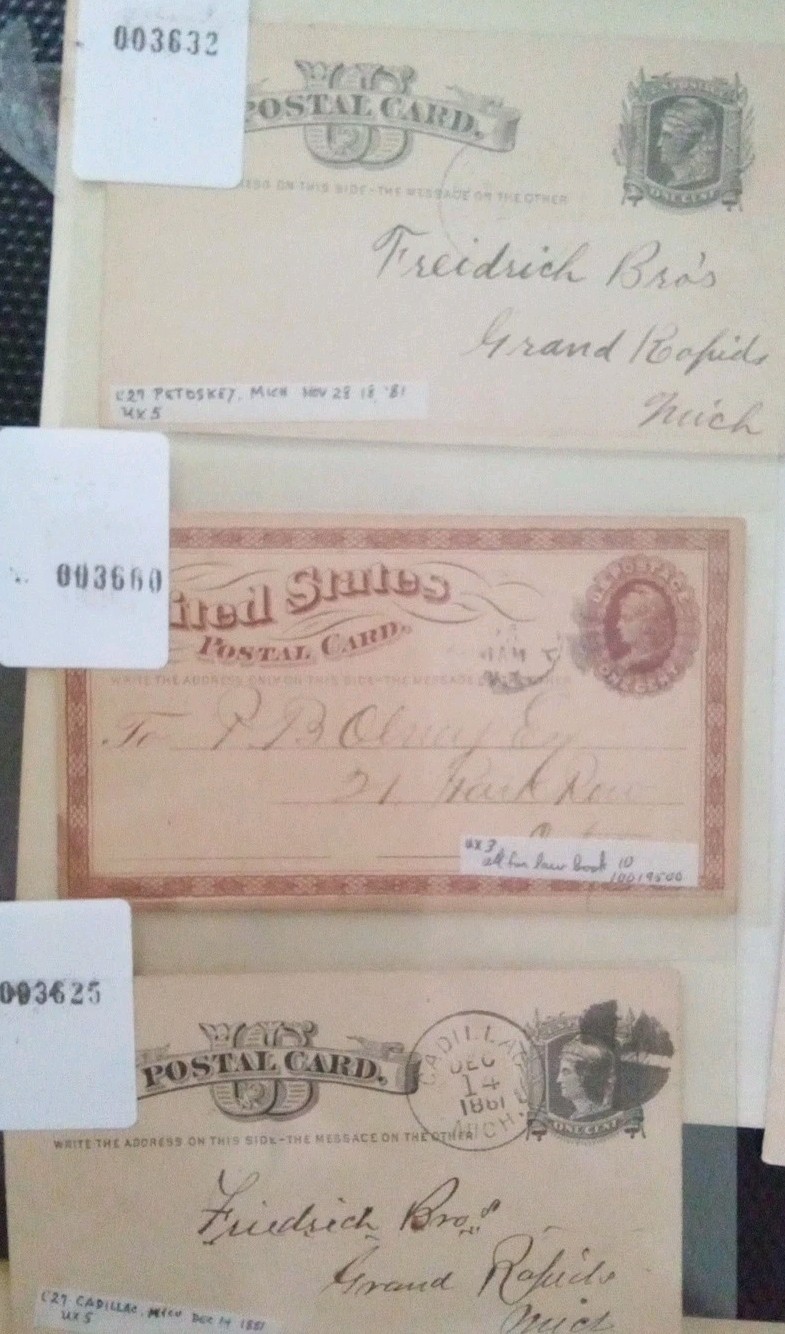 003632
POSTAL CARD.
ESS ON THIS SIDE-THE MESSAGE ON THE OTHER
ONE CENT
Freidrich Bro's
Grand Rapids
Mich
C27 PETOSKEY, MICH NOV 28 18 '81
UX5
003660
ited States
POSTAL CARD.
WRITE THE ADDRESS ONLY ON THIS SIDE-THE MESSAGE
U.S. POSTAGE
ONE CENT
To P. B. Olney Esq
21 Park Row
UX3
law book 10
10019500
003625
POSTAL CARD.
CADILLAC
DEC
14
1881
MICH.
ONE CENT
WRITE THE ADDRESS ON THIS SIDE-THE MESSAGE ON THE OTHER
Friedrich Bros
Grand Rapids
Mich
C27 CADILLAC, MICH DEC 14 1881
UX5